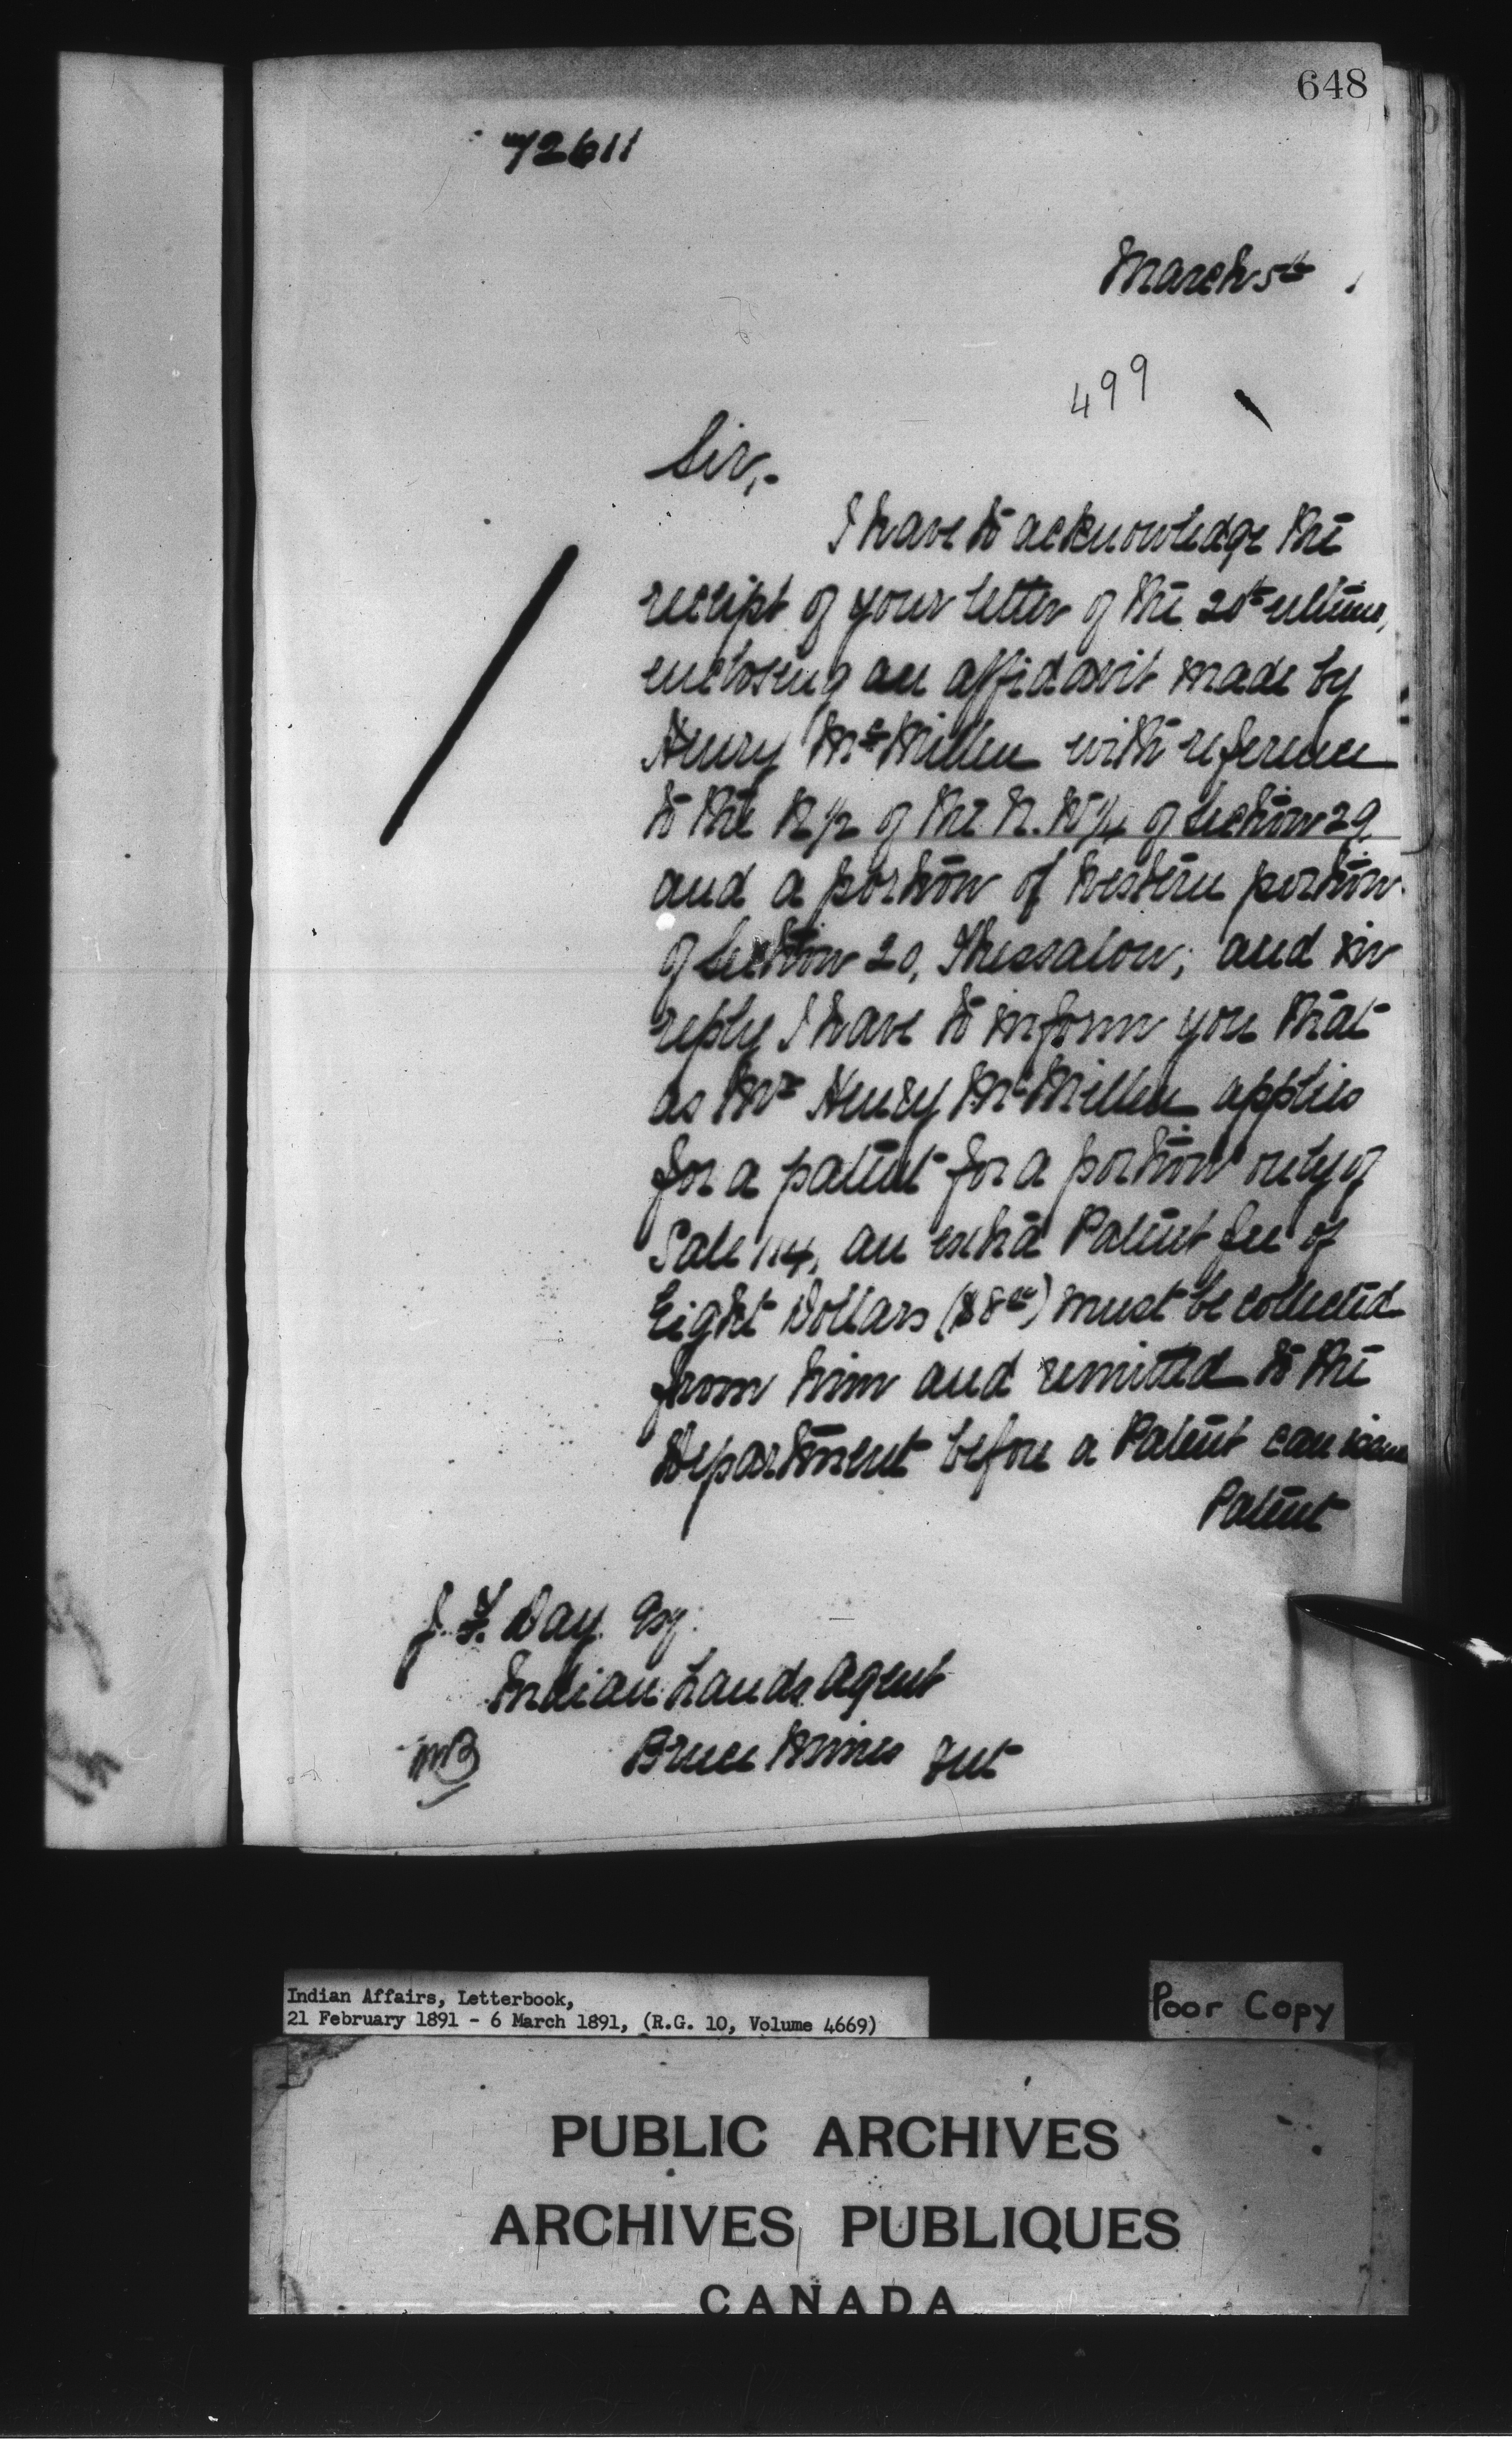 648
72611
March 5th
499
Sir,-
I have to acknowledge the
receipt of your letter of the 20th ultimo,
enclosing an affidavit made by
Henry McMillen with reference
to the N 1/2 of the N. W 1/4 of Section 29
and a portion of Western portion
of Section 20, Thessalon; and in
reply I have to inform you that
as Mr Henry McMillen applies
for a patent for a portion only of
Sale 114, an extra Patent fee of
Eight Dollars ($8 00) must be collected
from him and remitted to the
Department before a Patent can issue
Patent
J. F. Day Esq.
Indian Lands Agent
Bruce Mines Ont
MB
Indian Affairs, Letterbook,
21 February 1891 - 6 March 1891, (R.G. 10, Volume 4669)
Poor Copy
PUBLIC ARCHIVES
ARCHIVES PUBLIQUES
CANADA